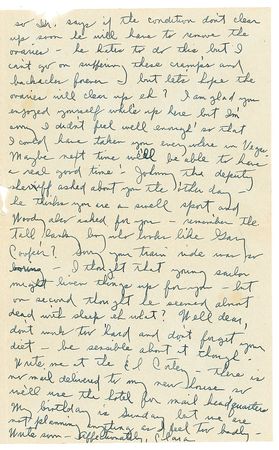 so Dr. says if the condition don't clear
up soon he will have to remove the
ovaries - he hates to do this but I
can't go on suffering these cramps and
backaches forever - but lets hope the
ovaries will clear up eh? I am glad you
enjoyed yourself while up here but I'm
sorry I didn't feel well enough so that
I could have taken you everywhere in Vegas.
Maybe next time we'll be able to have
a real good time! Johnny the deputy
sheriff asked about you the other day -
he thinks you are a swell sport and
Woody also asked for you - remember the
tall lanky boy who looks like Gary
Cooper? Sorry your train ride was so
boring - I thought that young sailor
might liven things up for you - but
on second thought he seemed almost
dead with sleep eh what? Well dear,
don't work too hard and don't forget your
diet - be sensible about it though -
Write me at the El Cortez - there is
no mail delivered to my new house so
we'll use the hotel for mail headquarters
My birthday is Sunday but we are
not planning anything as I feel too badly -
Write soon - affectionately, Clara